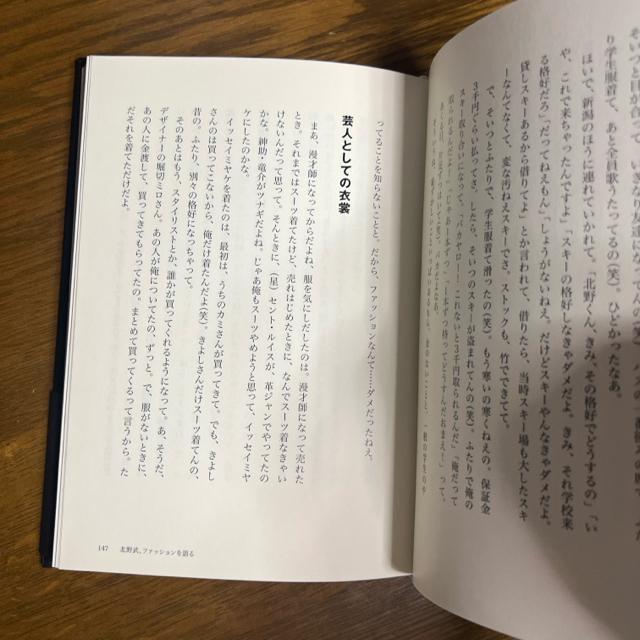 そいつと目が合って、いきなり
り学生服着て、あと全員歌うたってるの（笑）。ひとりかたなあ。
ほいで、新潟のほうに連れていかれて。「北野くん、きみ、その格好でどうするの」「い
や、これで来ちゃったんですよ」「スキーの格好しなきゃダメだよ。きみ、それ学校来
る格好だろう」。だってねえもん」しょうがないねえ。だけどスキーやんなきゃダメだよ。
貸しスキーあるから借りてよ」とか言われて、借りたら、当時スキー場も大したスキ
ーなんてなくて、変な汚ねえスキーでさ、ストックも、竹でできてて。
で、そいつとふたりで、学生服着て滑ったの（笑）。もう寒いの寒くねえの。保証金
3千円くらい払ってさ。したら、そいつのスキーが盗まれてんの（笑）。ふたりで俺の
ってることを知らないことと。だから、ファッションなんて……ダメだったねえ。
芸人としての衣裳
まあ、漫才師になってからだよね、服を気にしだしたのは。漫才師になって売れた
とき、それまではスーツ着てたけど、売れはじめたときに、なんでスーツ着なきゃい
けないんだって思って。そんときに、（星）セント・ルイスが、革ジャンでやってたの
かな。紳助・竜介がツナギだよね。じゃあ俺もスーツやめようと思って、イッセイミヤ
ケにしたのかな。
イッセイミヤケを着たのは、最初は、うちのカミさんが買ってきて。でも、きよし
さんのは買ってこないから、俺だけ着たんだよ（笑）。きよしさんだけスーツ着てんの、
昔の。ふたり、別々の格好になっちゃって。
そのあとはもう、スタイリストとか、誰かが買ってくれるようになって。あ、そうだ、
デザイナーの堀切ミロさん。あの人が俺についてたの、ずっと。で、服がないときに、
あの人に金渡して、買ってきてもらってたの。まとめて買ってくるって言うから。た
だそれを着てただけだよ。
147 北野武、ファッションを語る